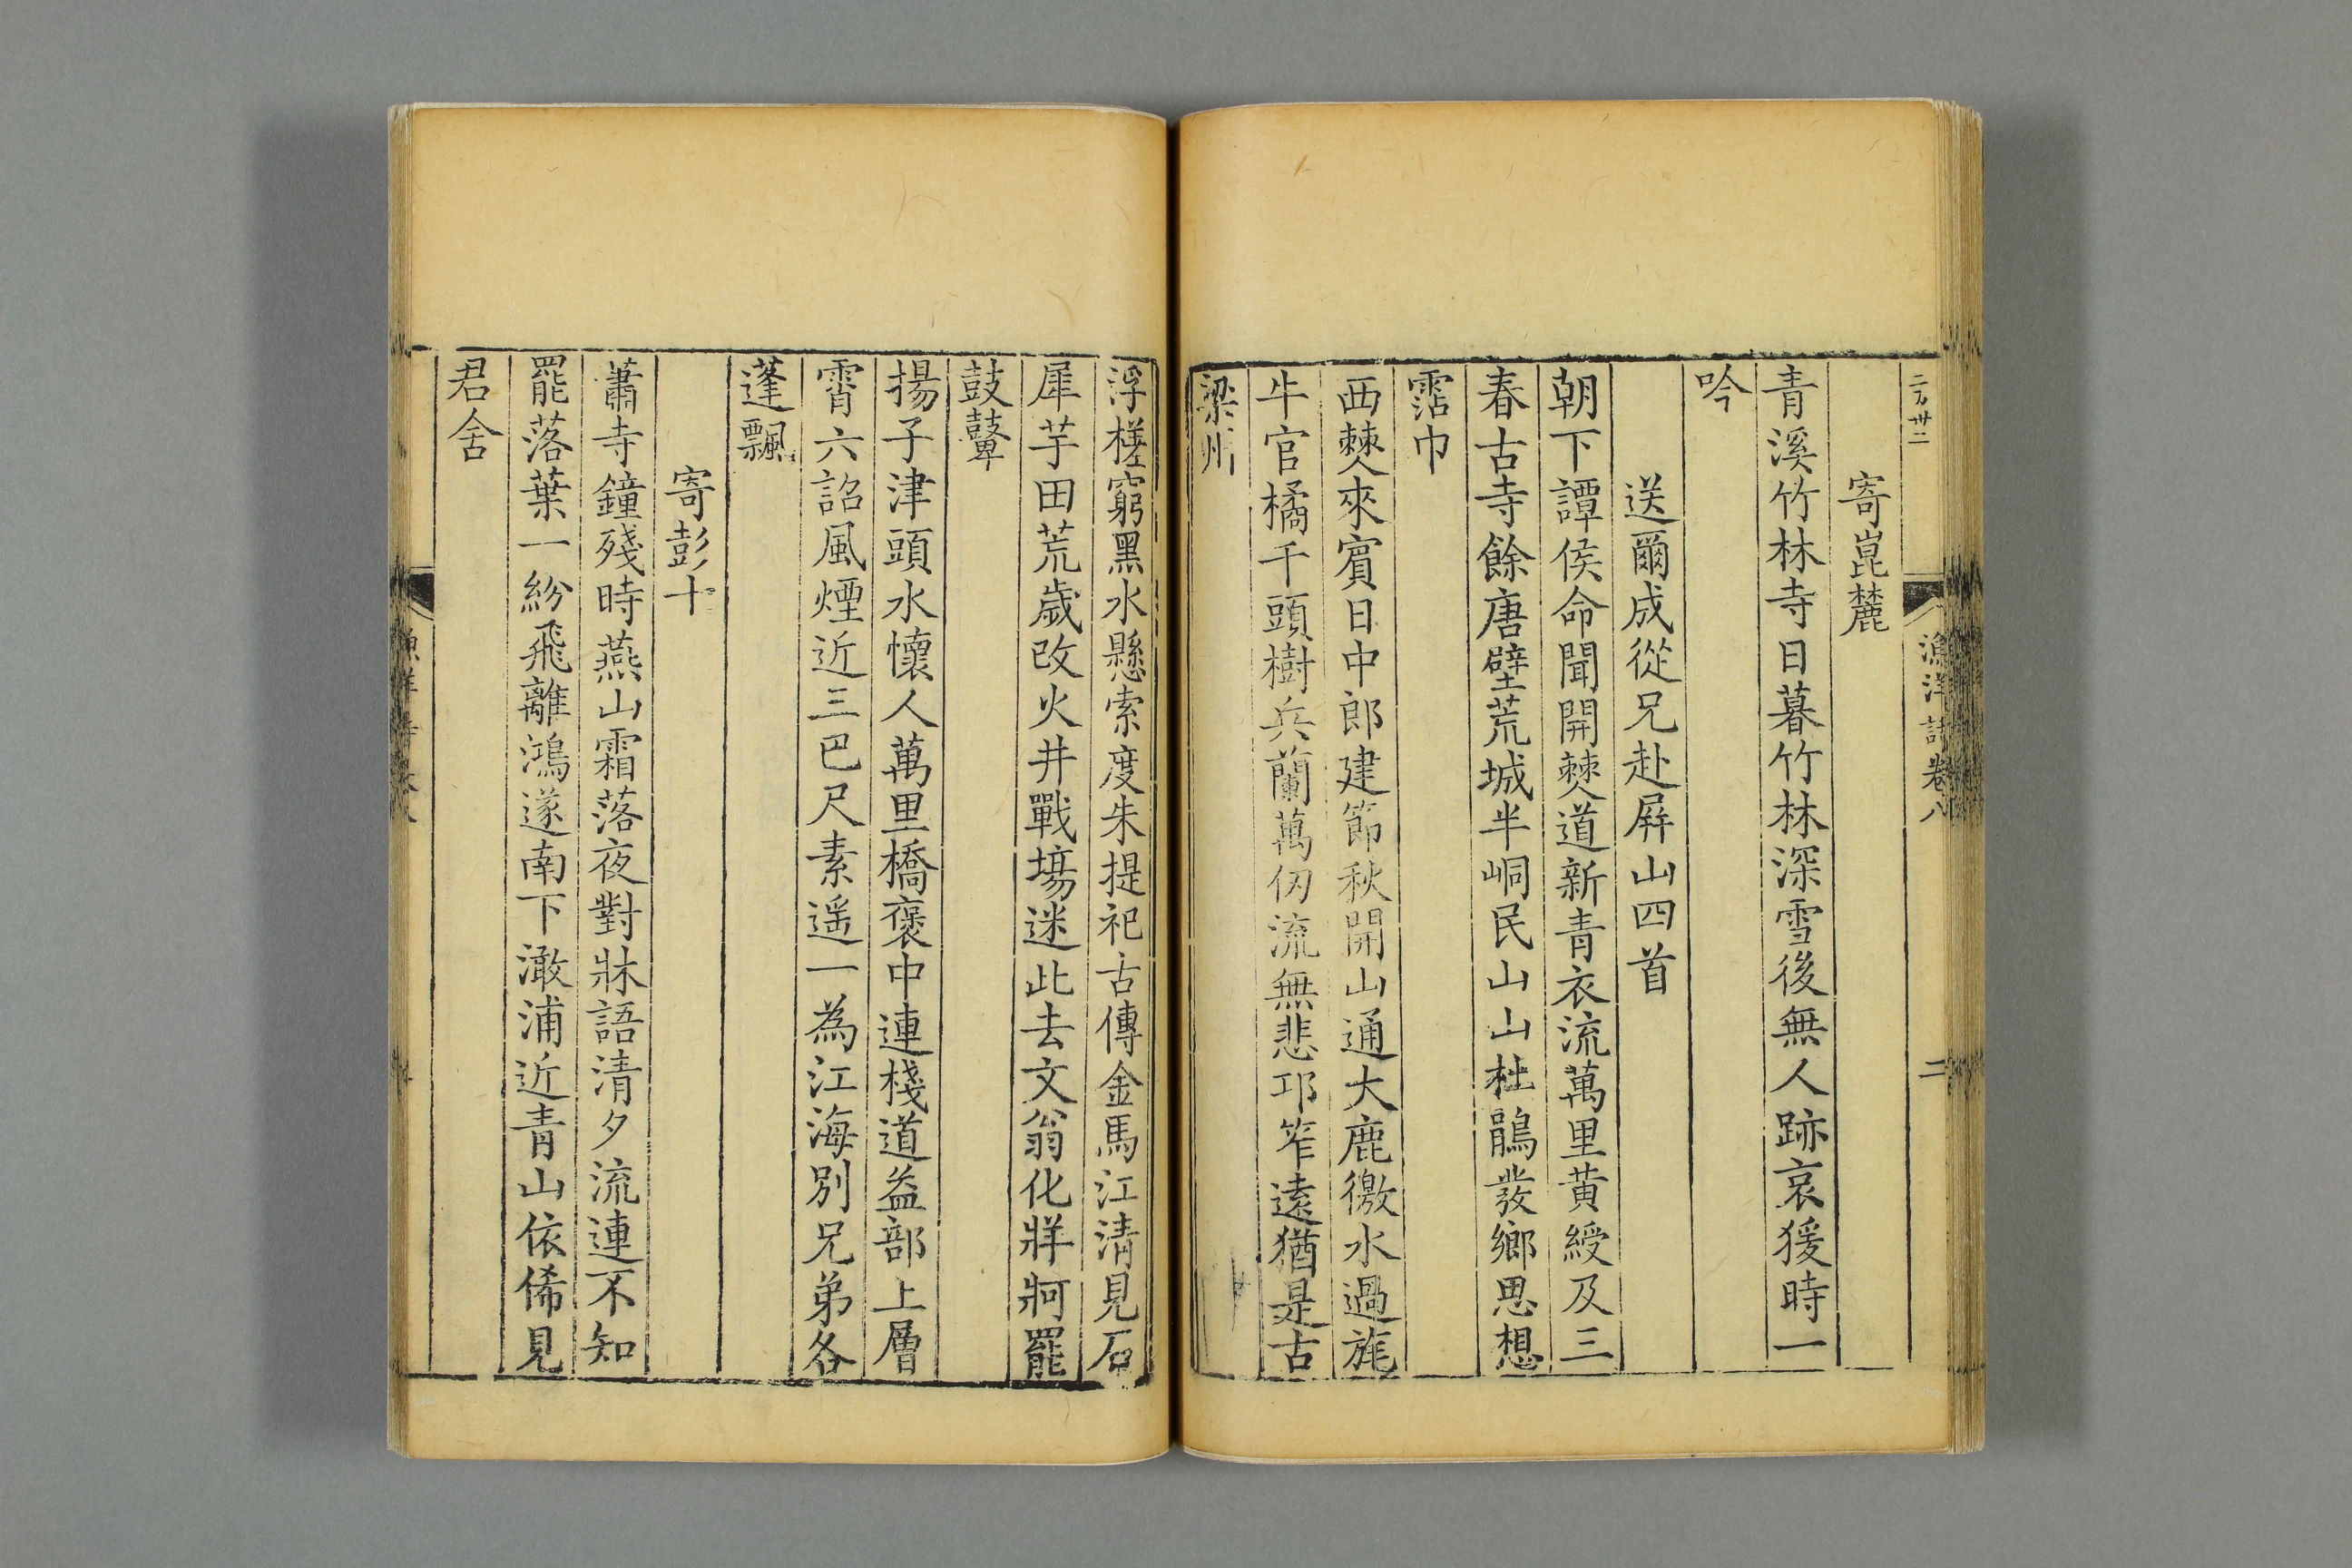 二万卅二
漁洋詩卷八
二
寄崑麓
青溪竹林寺日暮竹林深雪後無人跡哀猨時一
吟
送爾成從兄赴屏山四首
朝下譚侯命聞開僰道新青衣流萬里黃綬及三
春古寺餘唐壁荒城半峒民山山杜鵑發鄉思想
霑巾
西僰來賓日中郎建節秋開山通大鹿徼水過旄
牛官橘千頭樹兵蘭萬仞流無悲邛筰遠猶是古
梁州
浮槎窮黑水懸索度朱提祀古傳金馬江清見石
犀芋田荒歲改火井戰塲迷此去文翁化牂牁罷
鼓鼙
揚子津頭水懷人萬里橋褒中連棧道益部上層
霄六詔風煙近三巴尺素遥一為江海別兄弟各
蓬飄
寄彭十
蕭寺鐘殘時燕山霜落夜對牀語清夕流連不知
罷落葉一紛飛離鴻遂南下澉浦近青山依俙見
君舍